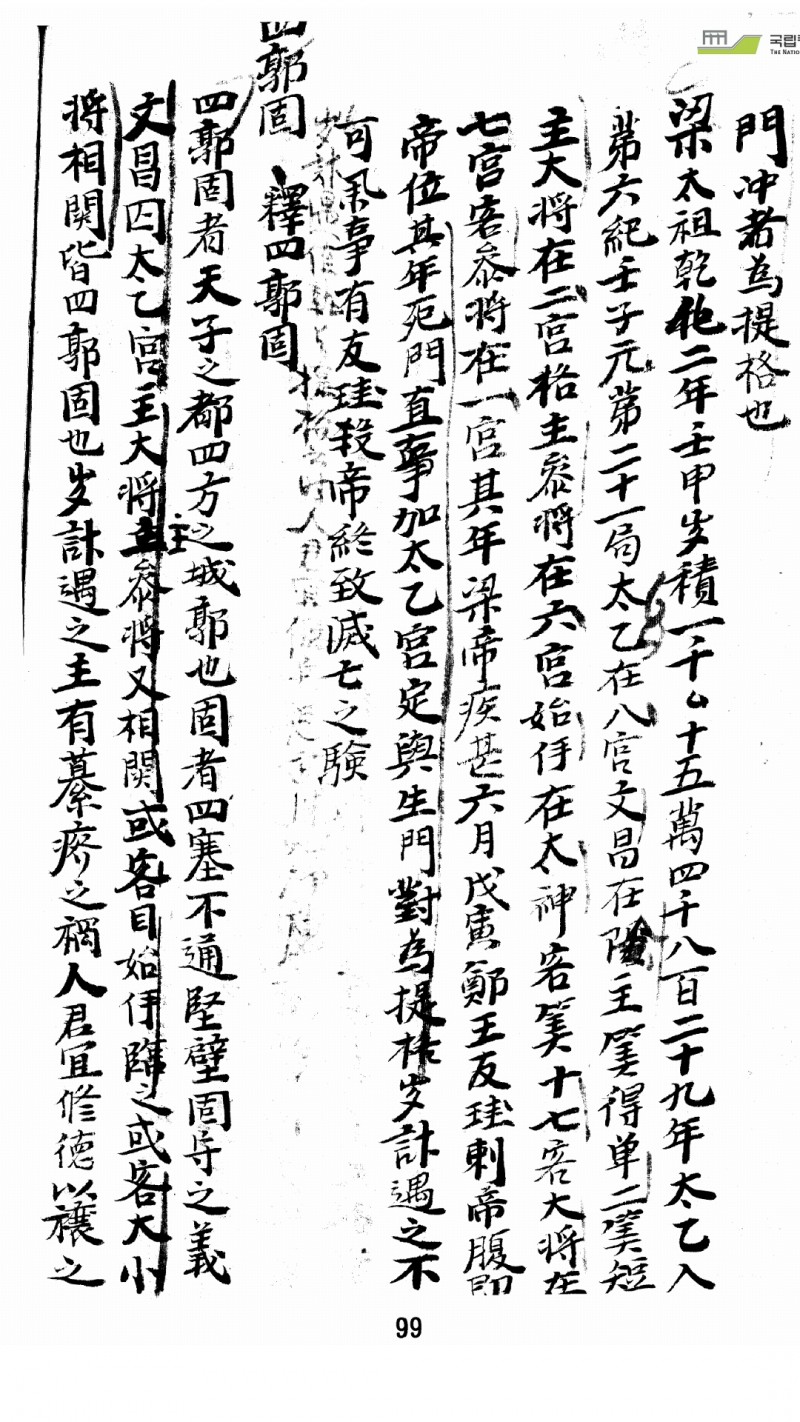 국립
THE NATIO
門冲者為提格也
梁太祖乾化二年壬申岁積一千厶十五萬四千八百二十九年太乙入
第六紀壬子元第二十一局太乙在八宫文昌在主筭得单二筭短
主大将在二宫格主叅将在六宫始仔在太神客筭十七客大将在
七宫客叅将在一宫其年梁帝疾甚六月戊寅鄭王友珪刺帝腹即
帝位其年死門直事加太乙宫定與生門對為提格岁計遇之不
可凩事有友珪殺帝終致滅亡之験
四郭固 釋四郭固
四郭固者天子之都四方之城郭也固者四塞不通堅壁固守之義
文昌囚太乙宫主大将主叅将又相関或客目始仔臨之或客大小
将相関皆四郭固也岁計遇之主有篡疥之禍人君宜修德以禳之
99